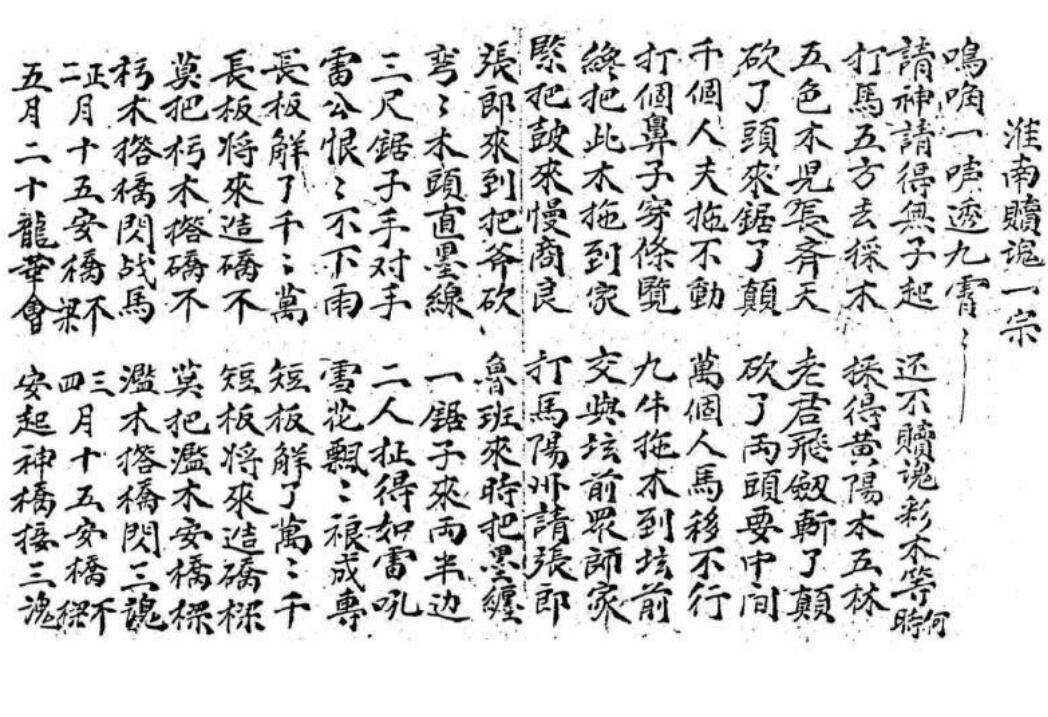 淮南贖魂一宗
鳴角一声透九霄〻
請神請得無子起 还不贖魂彩木等何時
打馬五方去採木 採得黃陽木五林
五色木児長斉天 老君飛劔斬了顛
砍了頭來鋸了顛 砍了両頭要中间
千個人夫拖不動 萬個人馬移不行
打個鼻子穿條覽 九牛拖木到坛前
終把此木拖到家 交與坛前眾師家
緊把鼓來慢商良 打馬陽州請張郎
張郎來到把斧砍 魯班來時把墨纏
弯〻木頭直墨線 一鋸子來両半边
三尺鋸子手对手 二人扯得如雷吼
雷公恨〻不下雨 雪花飄〻裉成專
長板解了千〻萬 短板解了萬〻千
長板将來造礄不 短板将來造礄樑
莫把朽木撘礄不 莫把濫木安橋樑
朽木撘橋閃战馬 濫木撘橋閃三魂
正二月十五安橋不梁 三四月十五安橋不樑
五月二十龍華會 安起神橋接三魂